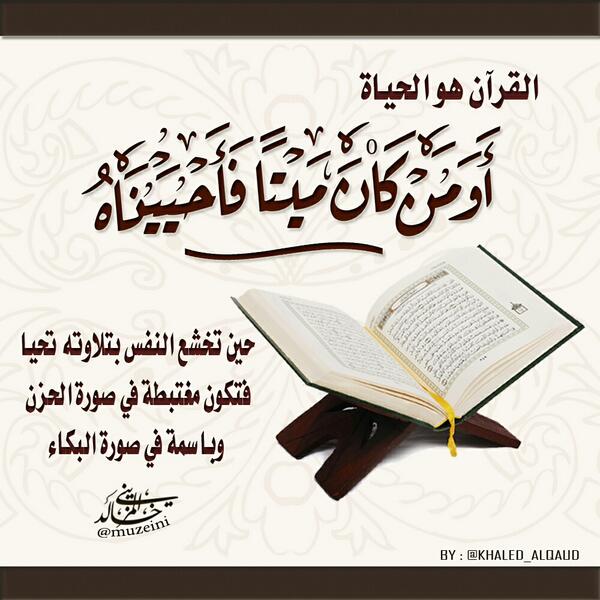 القرآن هو الحياة
أَوَمَنْ كَانَ مَيْتًا فَأَحْيَيْنَاهُ
حين تخشع النفس بتلاوته تحيا
فتكون مغتبطة في صورة الحزن
وباسمة في صورة البكاء
خالد المزيني
@muzeini
BY : @KHALED_ALQAUD